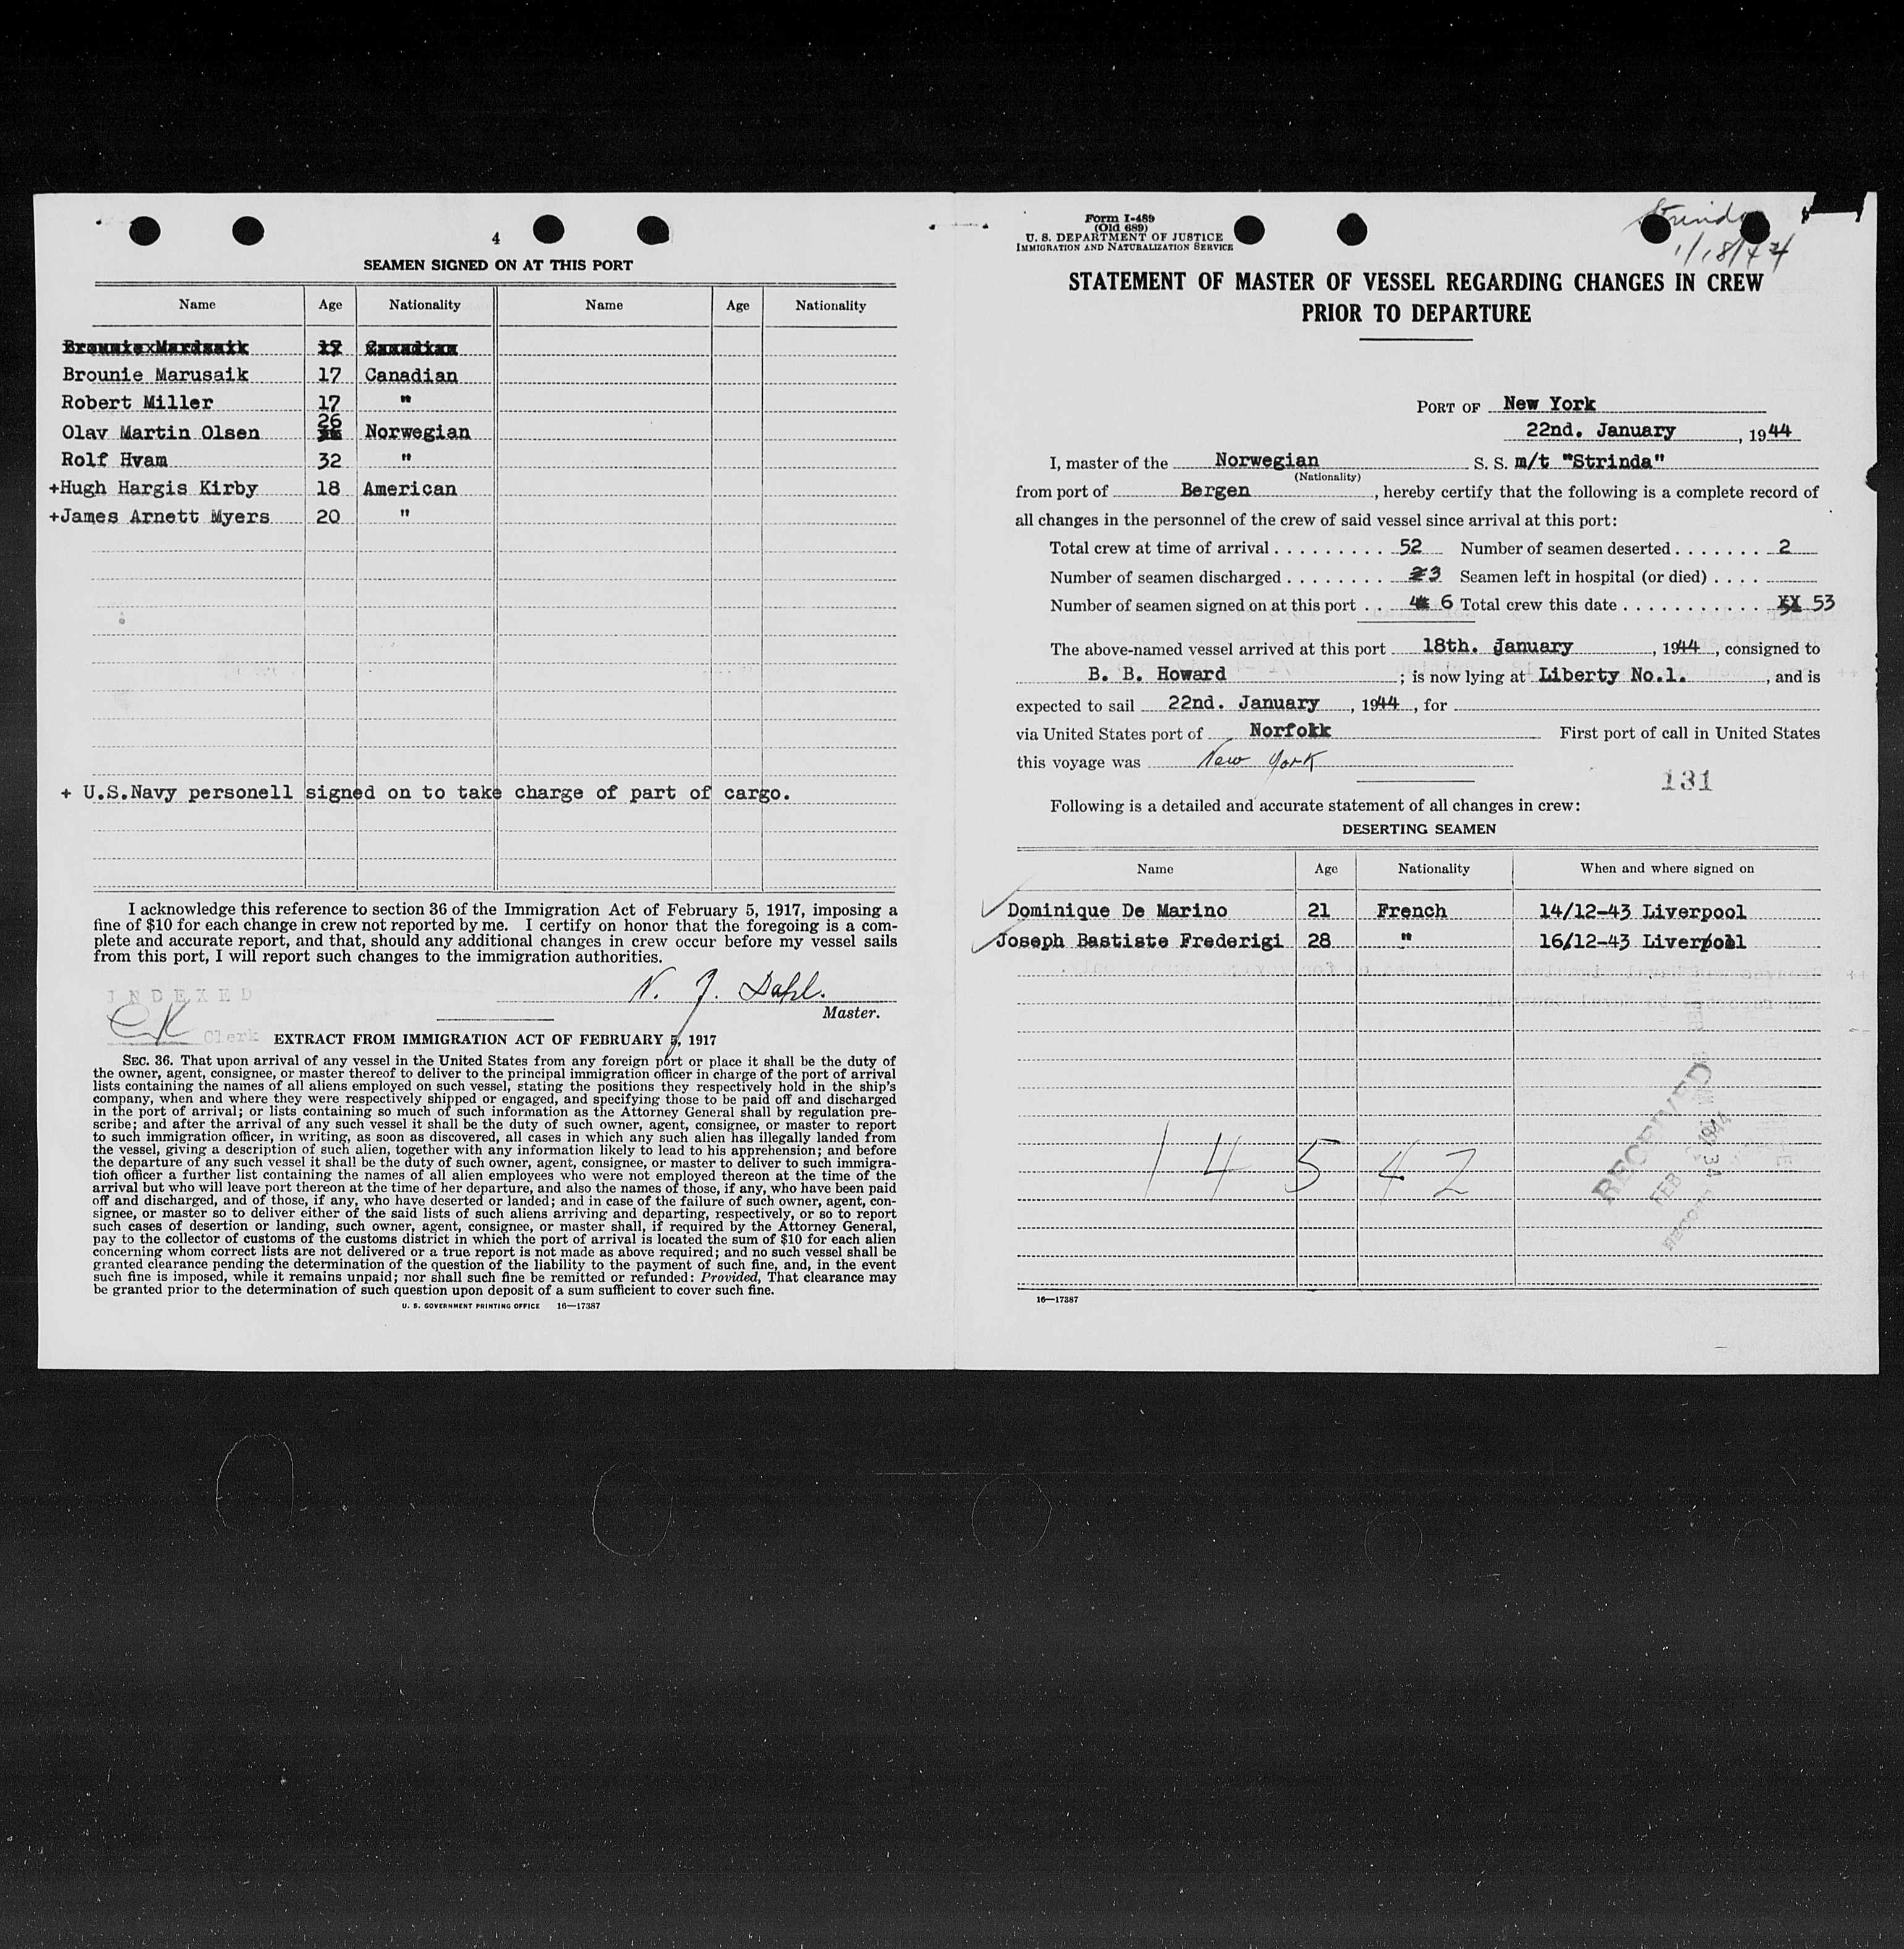 4
SEAMEN SIGNED ON AT THIS PORT
Name Age Nationality Name Age Nationality
Brounie Marusaik 17 Canadian
Robert Miller 17 "
Olav Martin Olsen 26 Norwegian
Rolf Hvam 32 "
+Hugh Hargis Kirby 18 American
+James Arnett Myers 20 "
+ U.S.Navy personell signed on to take charge of part of cargo.
I acknowledge this reference to section 36 of the Immigration Act of February 5, 1917, imposing a
fine of $10 for each change in crew not reported by me. I certify on honor that the foregoing is a com-
plete and accurate report, and that, should any additional changes in crew occur before my vessel sails
from this port, I will report such changes to the immigration authorities.
N. J. Dahl.
Master.
INDEXED
Clerk
EXTRACT FROM IMMIGRATION ACT OF FEBRUARY 5, 1917
SEC. 36. That upon arrival of any vessel in the United States from any foreign port or place it shall be the duty of
the owner, agent, consignee, or master thereof to deliver to the principal immigration officer in charge of the port of arrival
lists containing the names of all aliens employed on such vessel, stating the positions they respectively hold in the ship's
company, when and where they were respectively shipped or engaged, and specifying those to be paid off and discharged
in the port of arrival; or lists containing so much of such information as the Attorney General shall by regulation pre-
scribe; and after the arrival of any such vessel it shall be the duty of such owner, agent, consignee, or master to report
to such immigration officer, in writing, as soon as discovered, all cases in which any such alien has illegally landed from
the vessel, giving a description of such alien, together with any information likely to lead to his apprehension; and before
the departure of any such vessel it shall be the duty of such owner, agent, consignee, or master to deliver to such immigra-
tion officer a further list containing the names of all alien employees who were not employed thereon at the time of the
arrival but who will leave port thereon at the time of her departure, and also the names of those, if any, who have been paid
off and discharged, and of those, if any, who have deserted or landed; and in case of the failure of such owner, agent, con-
signee, or master so to deliver either of the said lists of such aliens arriving and departing, respectively, or so to report
such cases of desertion or landing, such owner, agent, consignee, or master shall, if required by the Attorney General,
pay to the collector of customs of the customs district in which the port of arrival is located the sum of $10 for each alien
concerning whom correct lists are not delivered or a true report is not made as above required; and no such vessel shall be
granted clearance pending the determination of the question of the liability to the payment of such fine, and, in the event
such fine is imposed, while it remains unpaid; nor shall such fine be remitted or refunded: Provided, That clearance may
be granted prior to the determination of such question upon deposit of a sum sufficient to cover such fine.
U. S. GOVERNMENT PRINTING OFFICE 16—17387
Form I-489
(Old 689)
U. S. DEPARTMENT OF JUSTICE
IMMIGRATION AND NATURALIZATION SERVICE
Strinda
1/18/44
STATEMENT OF MASTER OF VESSEL REGARDING CHANGES IN CREW
PRIOR TO DEPARTURE
PORT OF New York
22nd. January, 1944
I, master of the Norwegian S. S. m/t "Strinda"
(Nationality)
from port of Bergen, hereby certify that the following is a complete record of
all changes in the personnel of the crew of said vessel since arrival at this port:
Total crew at time of arrival . . . . . . . . . 52 Number of seamen deserted . . . . . . . 2
Number of seamen discharged . . . . . . . . 3 Seamen left in hospital (or died) . . . .
Number of seamen signed on at this port . . 6 Total crew this date . . . . . . . . . . . . 53
The above-named vessel arrived at this port 18th. January, 1944, consigned to
B. B. Howard; is now lying at Liberty No.1., and is
expected to sail 22nd. January, 1944, for
via United States port of Norfokk First port of call in United States
this voyage was New York
131
Following is a detailed and accurate statement of all changes in crew:
DESERTING SEAMEN
Name Age Nationality When and where signed on
Dominique De Marino 21 French 14/12-43 Liverpool
Joseph Bastiste Frederigi 28 " 16/12-43 Liverpool
14542
RECEIVED
FEB 1944
16—17387